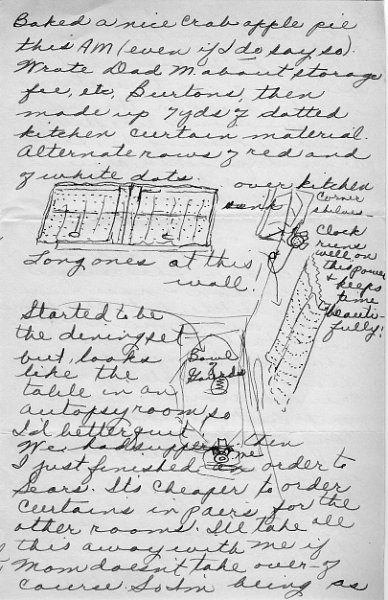 Baked a nice crab apple pie
this AM (even if I do say so).
Wrote Dad M. about storage
fee, etc, Burtons, then
made up 7 yds of dotted
kitchen curtain material.
Alternate rows of red and
of white dots.
over kitchen
sink
Corner
shelves
Clock
runs
well on
this power
& keeps
time
beauti-
fully!
Long ones at this
wall!
Started to be
the dining set
but looks
like the
table in an
autopsy room, so
I'd better quit
Bowl
of
Gourds
me
We had supper, then
I just finished an order to
Sears. It's cheaper to order
curtains in pairs for the
other rooms. I'll take all
this away with me if
Mom doesn't take over - of
course So Im being as